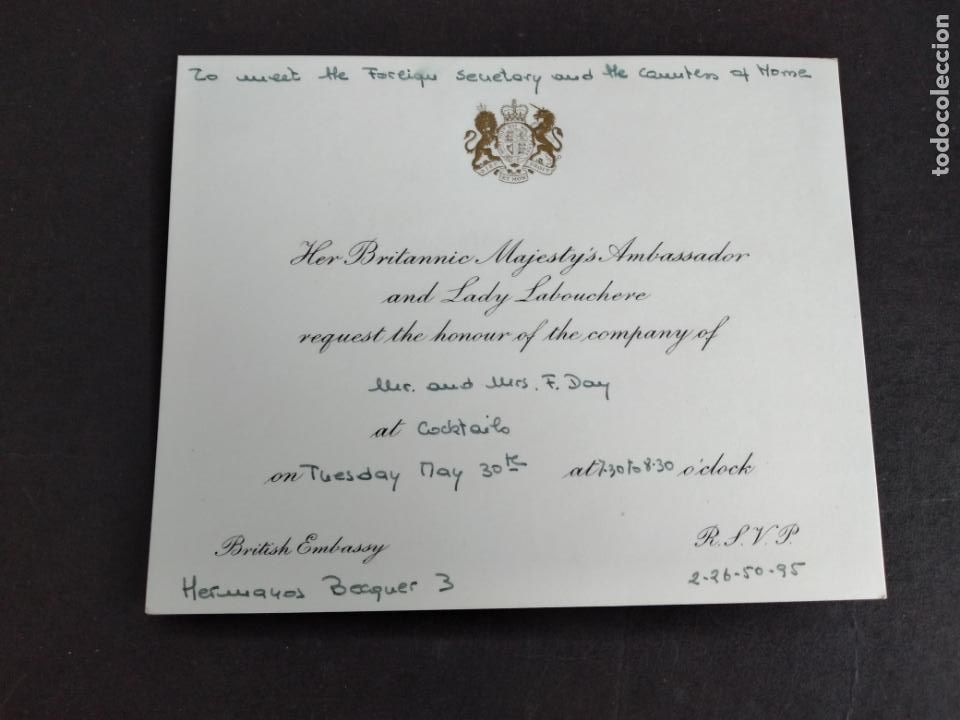 To meet the Foreign Secretary and the Countess of Home
Her Britannic Majesty's Ambassador
and Lady Labouchere
request the honour of the company of
Mr. and Mrs. F. Day
at Cocktails
on Tuesday May 30th at 7.30 to 8.30 o'clock
British Embassy
R.S.V.P.
Hermanos Becquer 3
2-26-50-95
todocoleccion